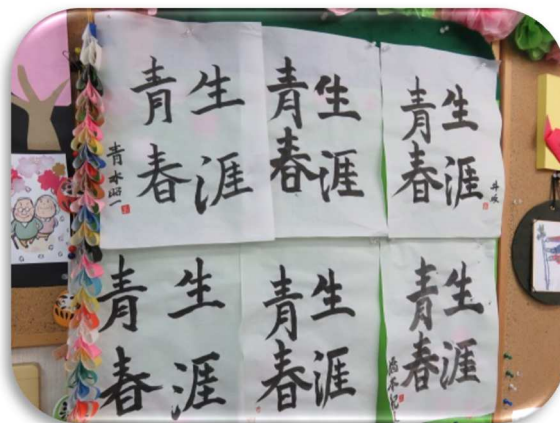 生涯
青春
青木昭一
生涯
青春
生涯
青春
生涯
青春
生涯
青春
生涯
青春